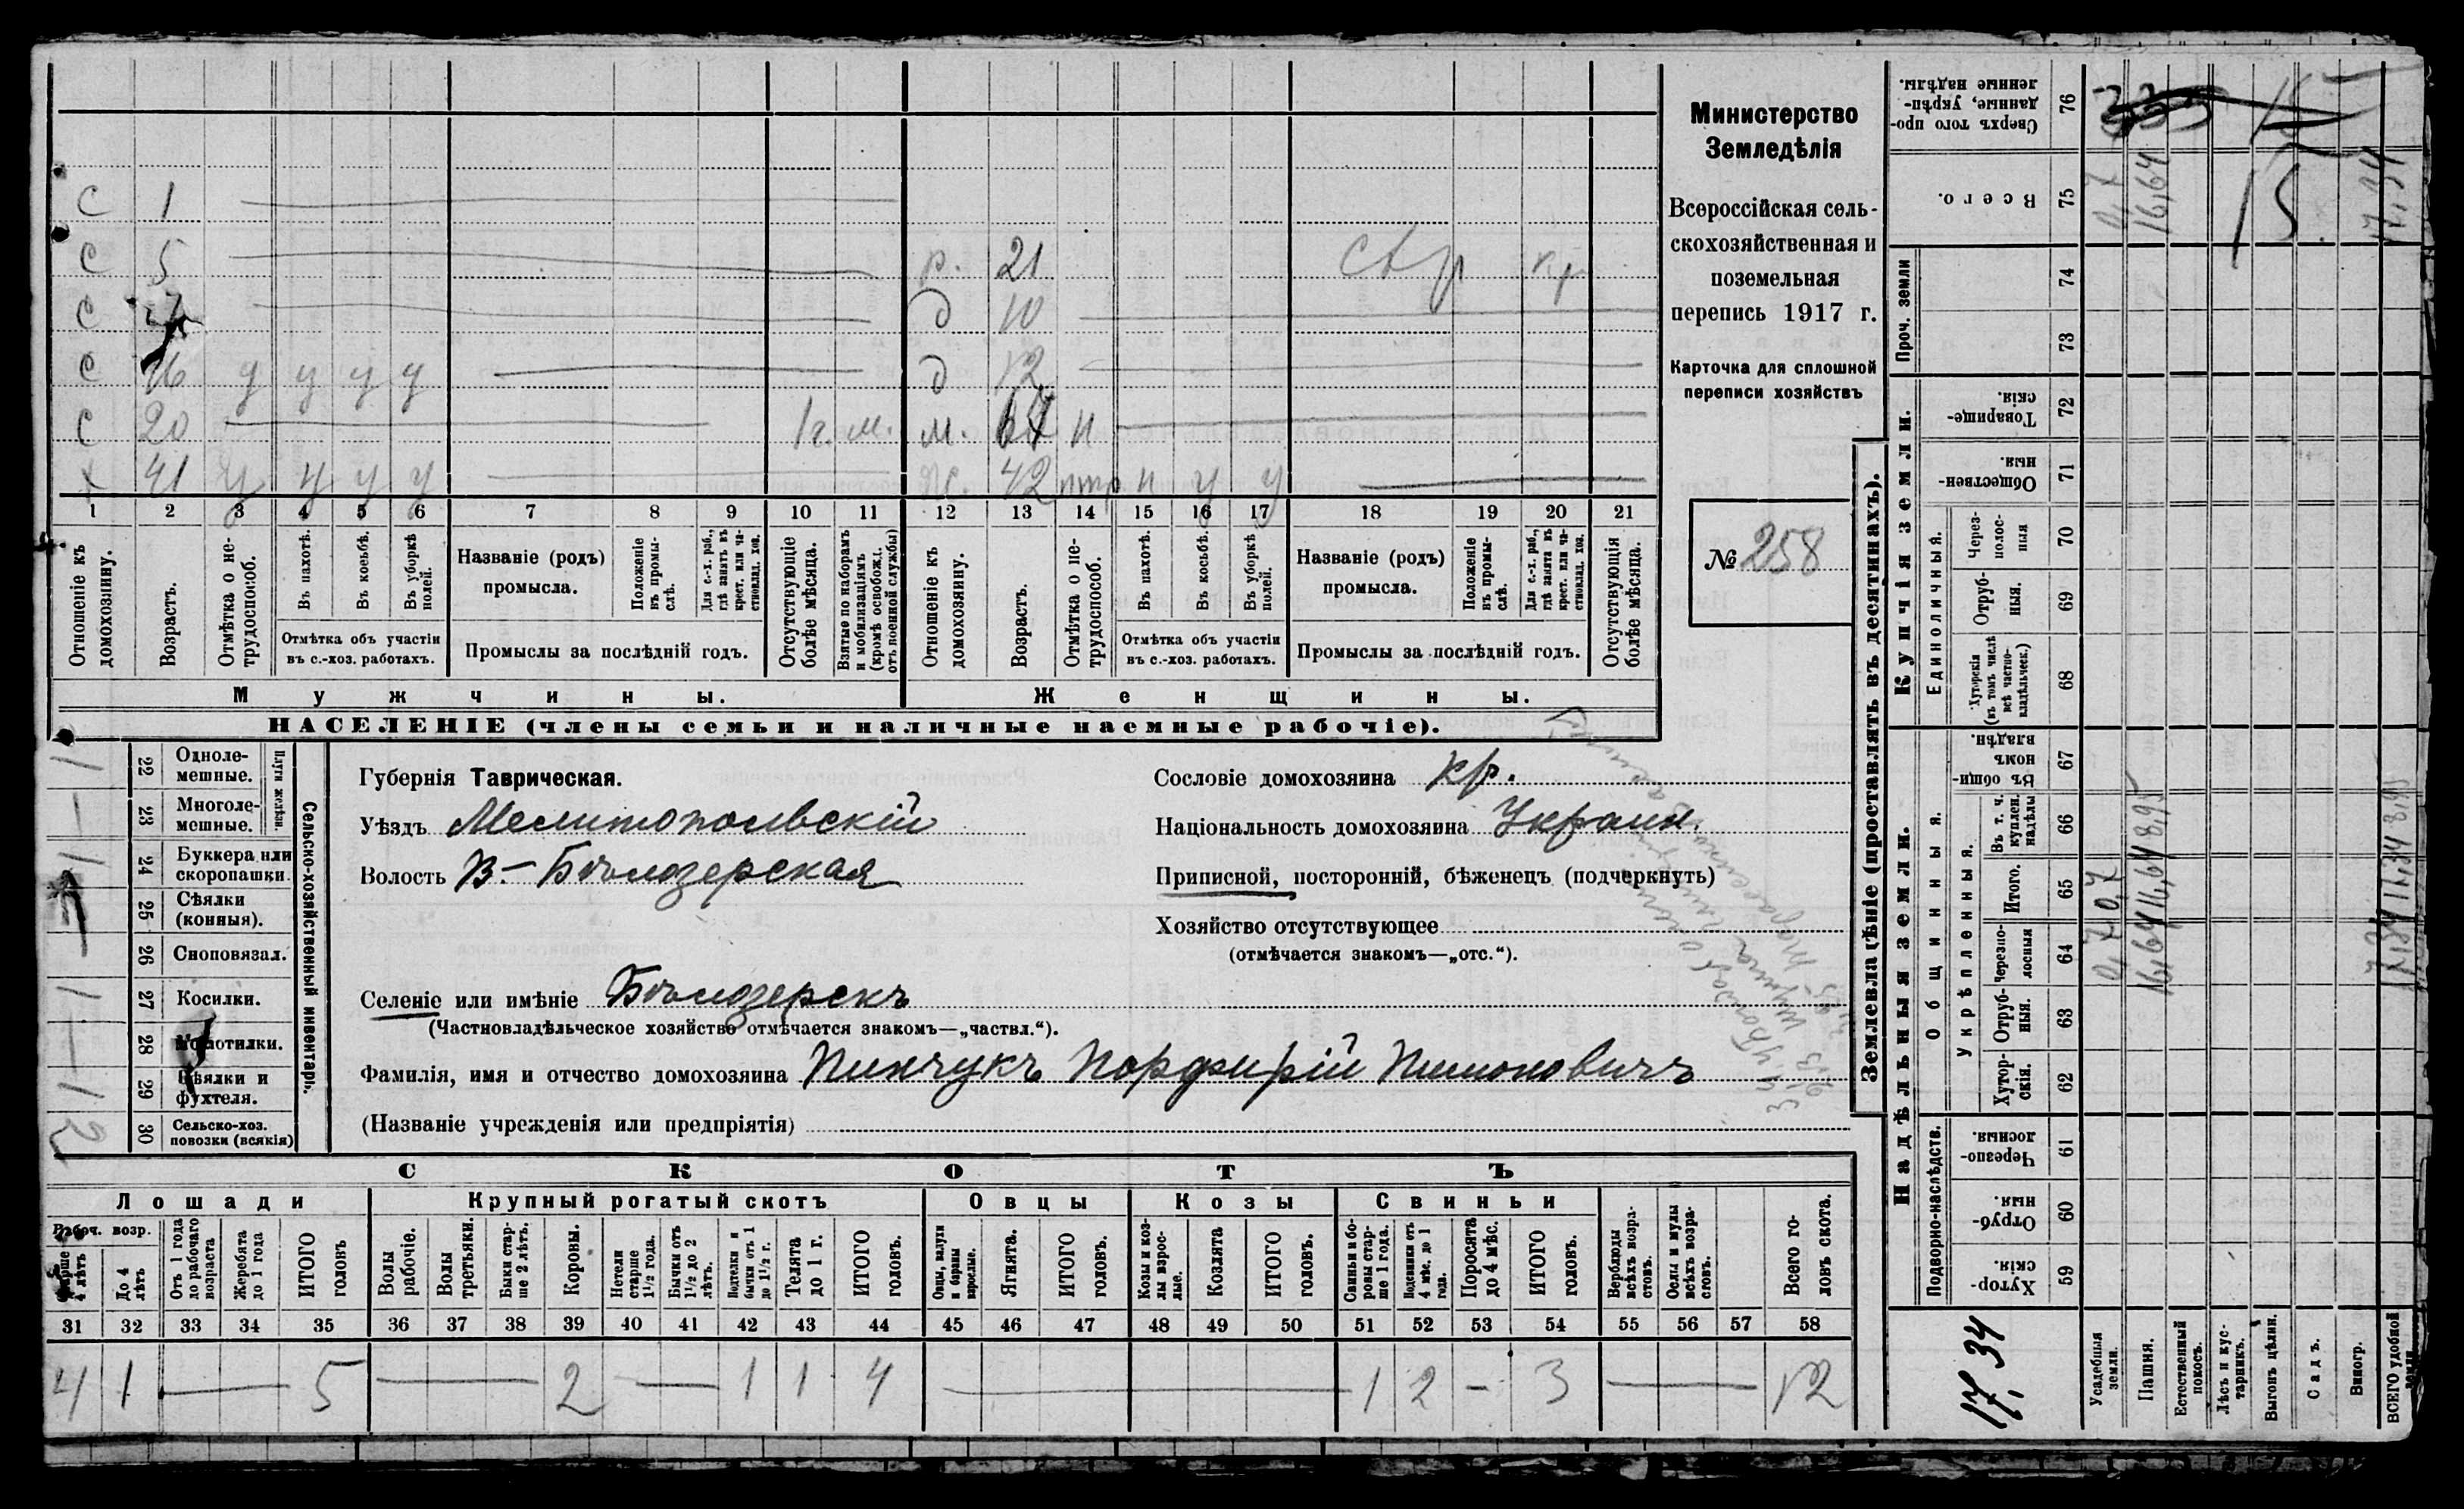 Министерство
Земледѣлія
Всероссійская сель-
скохозяйственная и
поземельная
перепись 1917 г.
Карточка для сплошной
переписи хозяйствъ
№ 258
С 1
С 5 р. 21 кр
С д 10
С 16 у у у у д 12
С 20 1 г. м. м. н
х 41 у у у у ж. 42 н у у
1 2 3 4 5 6 7 8 9 10 11 12 13 14 15 16 17 18 19 20 21
Отношеніе къ домохозяину.
Возрастъ.
Отмѣтка о не-трудоспособ.
Въ пахотѣ.
Въ косьбѣ.
Въ уборкѣ полей.
Отмѣтка объ участіи
въ с.-хоз. работахъ.
Названіе (родъ)
промысла.
Положеніе въ промы-слѣ.
Для с.-х. раб., гдѣ занятъ въ крест. или ча-стновлад. хоз.
Промыслы за послѣдній годъ.
Отсутствующіе болѣе мѣсяца.
Взятые по наборамъ и мобилизаціямъ (кромѣ освобожд. отъ военной службы)
Отношеніе къ домохозяину.
Возрастъ.
Отмѣтка о не-трудоспособ.
Въ пахотѣ.
Въ косьбѣ.
Въ уборкѣ полей.
Отмѣтка объ участіи
въ с.-хоз. работахъ.
Названіе (родъ)
промысла.
Положеніе въ промы-слѣ.
Для с.-х. раб., гдѣ занята въ крест. или ча-стновлад. хоз.
Промыслы за послѣдній годъ.
Отсутствующія болѣе мѣсяца.
Мужчины. Женщины.
НАСЕЛЕНІЕ (члены семьи и наличные наемные рабочіе).
Сельско-хозяйственный инвентарь.
Плуги желѣзн.
22 Одноле-мешные. 1
23 Многоле-мешные. —
24 Буккера или скоропашки. 1
25 Сѣялки (конныя).
26 Сноповязал. —
27 Косилки. 1
28 Молотилки. —
29 Вѣялки и фухтеля. 1
30 Сельско-хоз. повозки (всякія) 2
Губернія Таврическая.
Уѣздъ Мелитопольскій
Волость В-Бѣлозерская
Селеніе или имѣніе Бѣлозерскъ
(Частновладѣльческое хозяйство отмѣчается знакомъ—„частвл.“).
Фамилія, имя и отчество домохозяина Пинчукъ Порфирій Пимоновичъ
(Названіе учрежденія или предпріятія)
Сословіе домохозяина кр.
Національность домохозяина Украин.
Приписной, посторонній, бѣженецъ (подчеркнуть)
Хозяйство отсутствующее
(отмѣчается знакомъ—„отс.“).
СКОТЪ
Лошади Крупный рогатый скотъ Овцы Козы Свиньи
Рабоч. возр.
Старше 4 лѣтъ
До 4 лѣтъ
Отъ 1 года до рабочаго возраста
Жеребята до 1 года
ИТОГО головъ
Волы рабочіе.
Волы третьяки.
Быки стар-ше 2 лѣтъ.
Коровы.
Нетели старше 1½ года.
Бычки отъ 1½ до 2 лѣтъ.
Подтелки и бычки отъ 1 до 1½ г.
Телята до 1 г.
ИТОГО головъ.
Овцы, валухи и бараны взрослые.
Ягнята.
ИТОГО головъ.
Козы и коз-лы взрос-лые.
Козлята
ИТОГО головъ.
Свиньи и бо-ровы стар-ше 1 года.
Подсвинки отъ 4 мѣс. до 1 года.
Поросята до 4 мѣс.
ИТОГО головъ.
Верблюды всѣхъ возра-стовъ.
Ослы и мулы всѣхъ возра-стовъ.
Всего го-ловъ скота.
31 32 33 34 35 36 37 38 39 40 41 42 43 44 45 46 47 48 49 50 51 52 53 54 55 56 57 58
4 1 — 5 — 2 — 1 1 4 — 1 2 – 3 — 12
Землевладѣніе (проставлять въ десятинахъ).
Надѣльныя земли. Купчія земли.
Подворно-наслѣдств.
Общинныя.
Укрѣпленныя.
Единоличныя.
Проч. земли
Сверхъ того про-данные, укрѣп-ленные надѣлы. 76
Всего. 75
74
73
Товарище-скія. 72
Обществен-ныя. 71
Через-полос-ныя 70
Отруб-ныя. 69
Хуторскія (въ томъ числѣ всѣ частно-владѣльческ.) 68
Въ общин-номъ владѣн. 67
Въ т. ч. куплен. надѣлы 66
Итого. 65
Черезпо-лосныя 64
Отруб-ныя. 63
Хутор-скія. 62
Черезпо-лосныя. 61
Отруб-ныя. 60
Хутор-скія. 59
17,34
Усадебныя земли. 0,7 0,7 0,7
Пашня. 16,64 16,64 8,95 16,64
Естественный покосъ.
Лѣсъ и кус-тарникъ.
Выгонъ цѣлин. 15
Садъ.
Виногр.
ВСЕГО удобной земли. 17,34 17,34 8,95 17,34